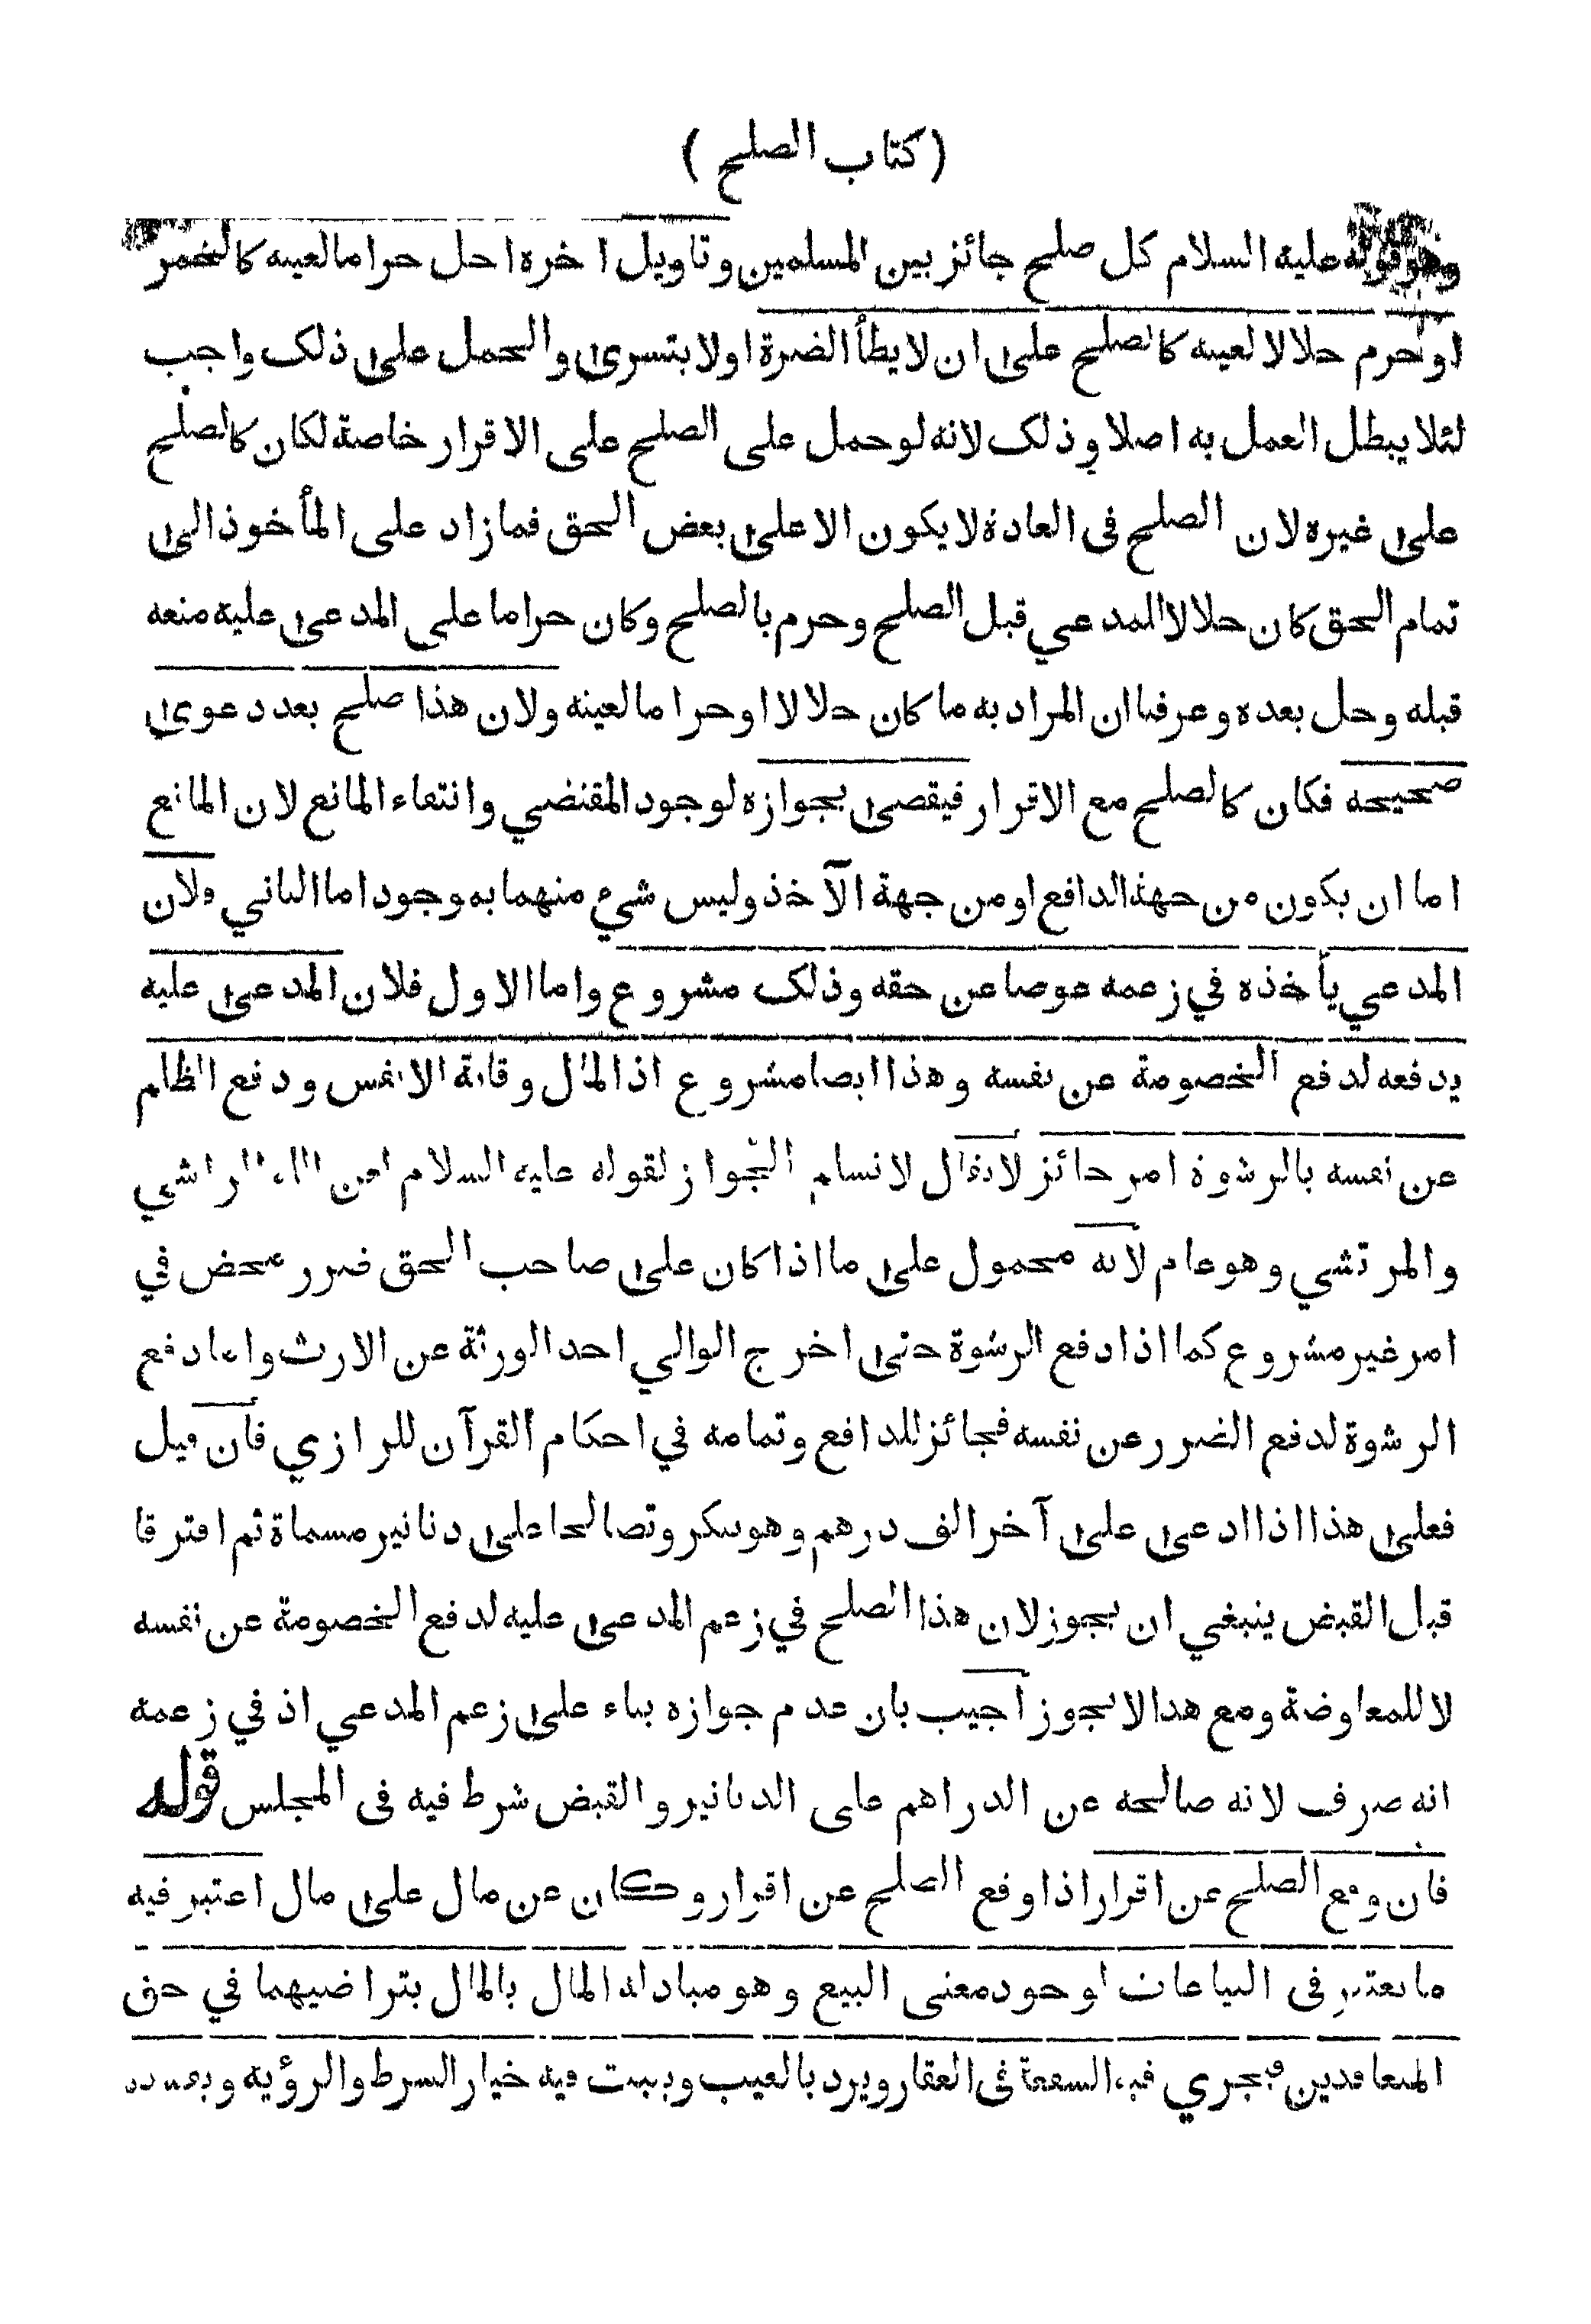 ( كتاب الصلح )
وهو قوله عليه السلام كل صلح جائز بين المسلمين وتاويل اخره احل حراما لعينه كالخمر
او حرم حلالا لعينه كالصلح على ان لا يطأ الضرة او لا يتسرى والحمل على ذلك واجب
لئلا يبطل العمل به اصلا وذلك لانه لو حمل على الصلح على الاقرار خاصة لكان كالصلح
على غيره لان الصلح فى العادة لا يكون الا على بعض الحق فما زاد على المأخوذ الى
تمام الحق كان حلالا للمدعي قبل الصلح وحرم بالصلح وكان حراما على المدعى عليه منعه
قبله وحل بعده وعرفنا ان المراد به ما كان حلالا او حراما لعينه ولان هذا صلح بعد دعوى
صحيحه فكان كالصلح مع الاقرار فيقضى بجوازه لوجود المقتضي وانتفاء المانع لان المانع
اما ان يكون من جهة الدافع او من جهة الآخذ وليس شيء منهما بموجود اما الثاني ولان
المدعي يأخذه في زعمه عوضا عن حقه وذلك مشروع واما الاول فلان المدعى عليه
يدفعه لدفع الخصومة عن نفسه وهذا ايضا مشروع اذ المال وقاية الانفس ودفع الظلم
عن نفسه بالرشوة امر جائز لا يقال لا نسلم الجواز لقوله عليه السلام لعن الله الراشي
والمرتشي وهو عام لانه محمول على ما اذا كان على صاحب الحق ضرر محض في
امر غير مشروع كما اذا دفع الرشوة حتى اخرج الوالي احد الورثة عن الارث واما دفع
الرشوة لدفع الضرر عن نفسه فجائز للدافع وتمامه في احكام القرآن للرازي فان قيل
فعلى هذا اذا ادعى على آخر الف درهم وهو ينكر وتصالحا على دنانير مسماة ثم افترقا
قبل القبض ينبغي ان يجوز لان هذا الصلح في زعم المدعى عليه لدفع الخصومة عن نفسه
لا للمعاوضة ومع هذا لا يجوز اجيب بان عدم جوازه بناء على زعم المدعي اذ في زعمه
انه صرف لانه صالحه عن الدراهم على الدنانير والقبض شرط فيه فى المجلس قوله
فان وقع الصلح عن اقرار اذا وقع الصلح عن اقرار وكان عن مال على مال اعتبر فيه
ما يعتبر فى البياعات لوجود معنى البيع وهو مبادلة المال بالمال بتراضيهما في حق
المتعاقدين فيجري فيه الشفعة فى العقار ويرد بالعيب ويثبت فيه خيار الشرط والرؤيه